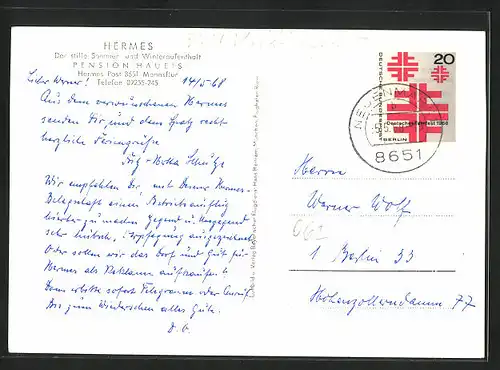 HERMES
Der stille Sommer- und Winteraufenthalt
PENSION HAUEIS
Hermes Post 8651 Marienfeur
Telefon 09255-245
14/5-68
Lieber Werner!
Aus dem verwunschenen Hermes
senden Dir und dem Spatz recht
herzliche Feriengrüße
Fritz-Metta Schulze
Wir empfehlen Dir, mit Deiner Hermes-
Belegschaft einen Betriebsausflug
hierher zu machen. Gegend u. Umgegend
sehr hübsch. Verpflegung ausgezeichnet
Oder sollen wir das Dorf und Gut für
Hermes als Reklame aufkaufen?
Dann erbitte sofort Telegramm oder Anruf.
Bis zum Wiedersehen alles Gute.
D. O.
20
DEUTSCHE BUNDESPOST
BERLIN
Deutsches Turnfest 1968
8651
Herrn
Werner Wolf
1 Berlin 33
Hohenzollerndamm 77